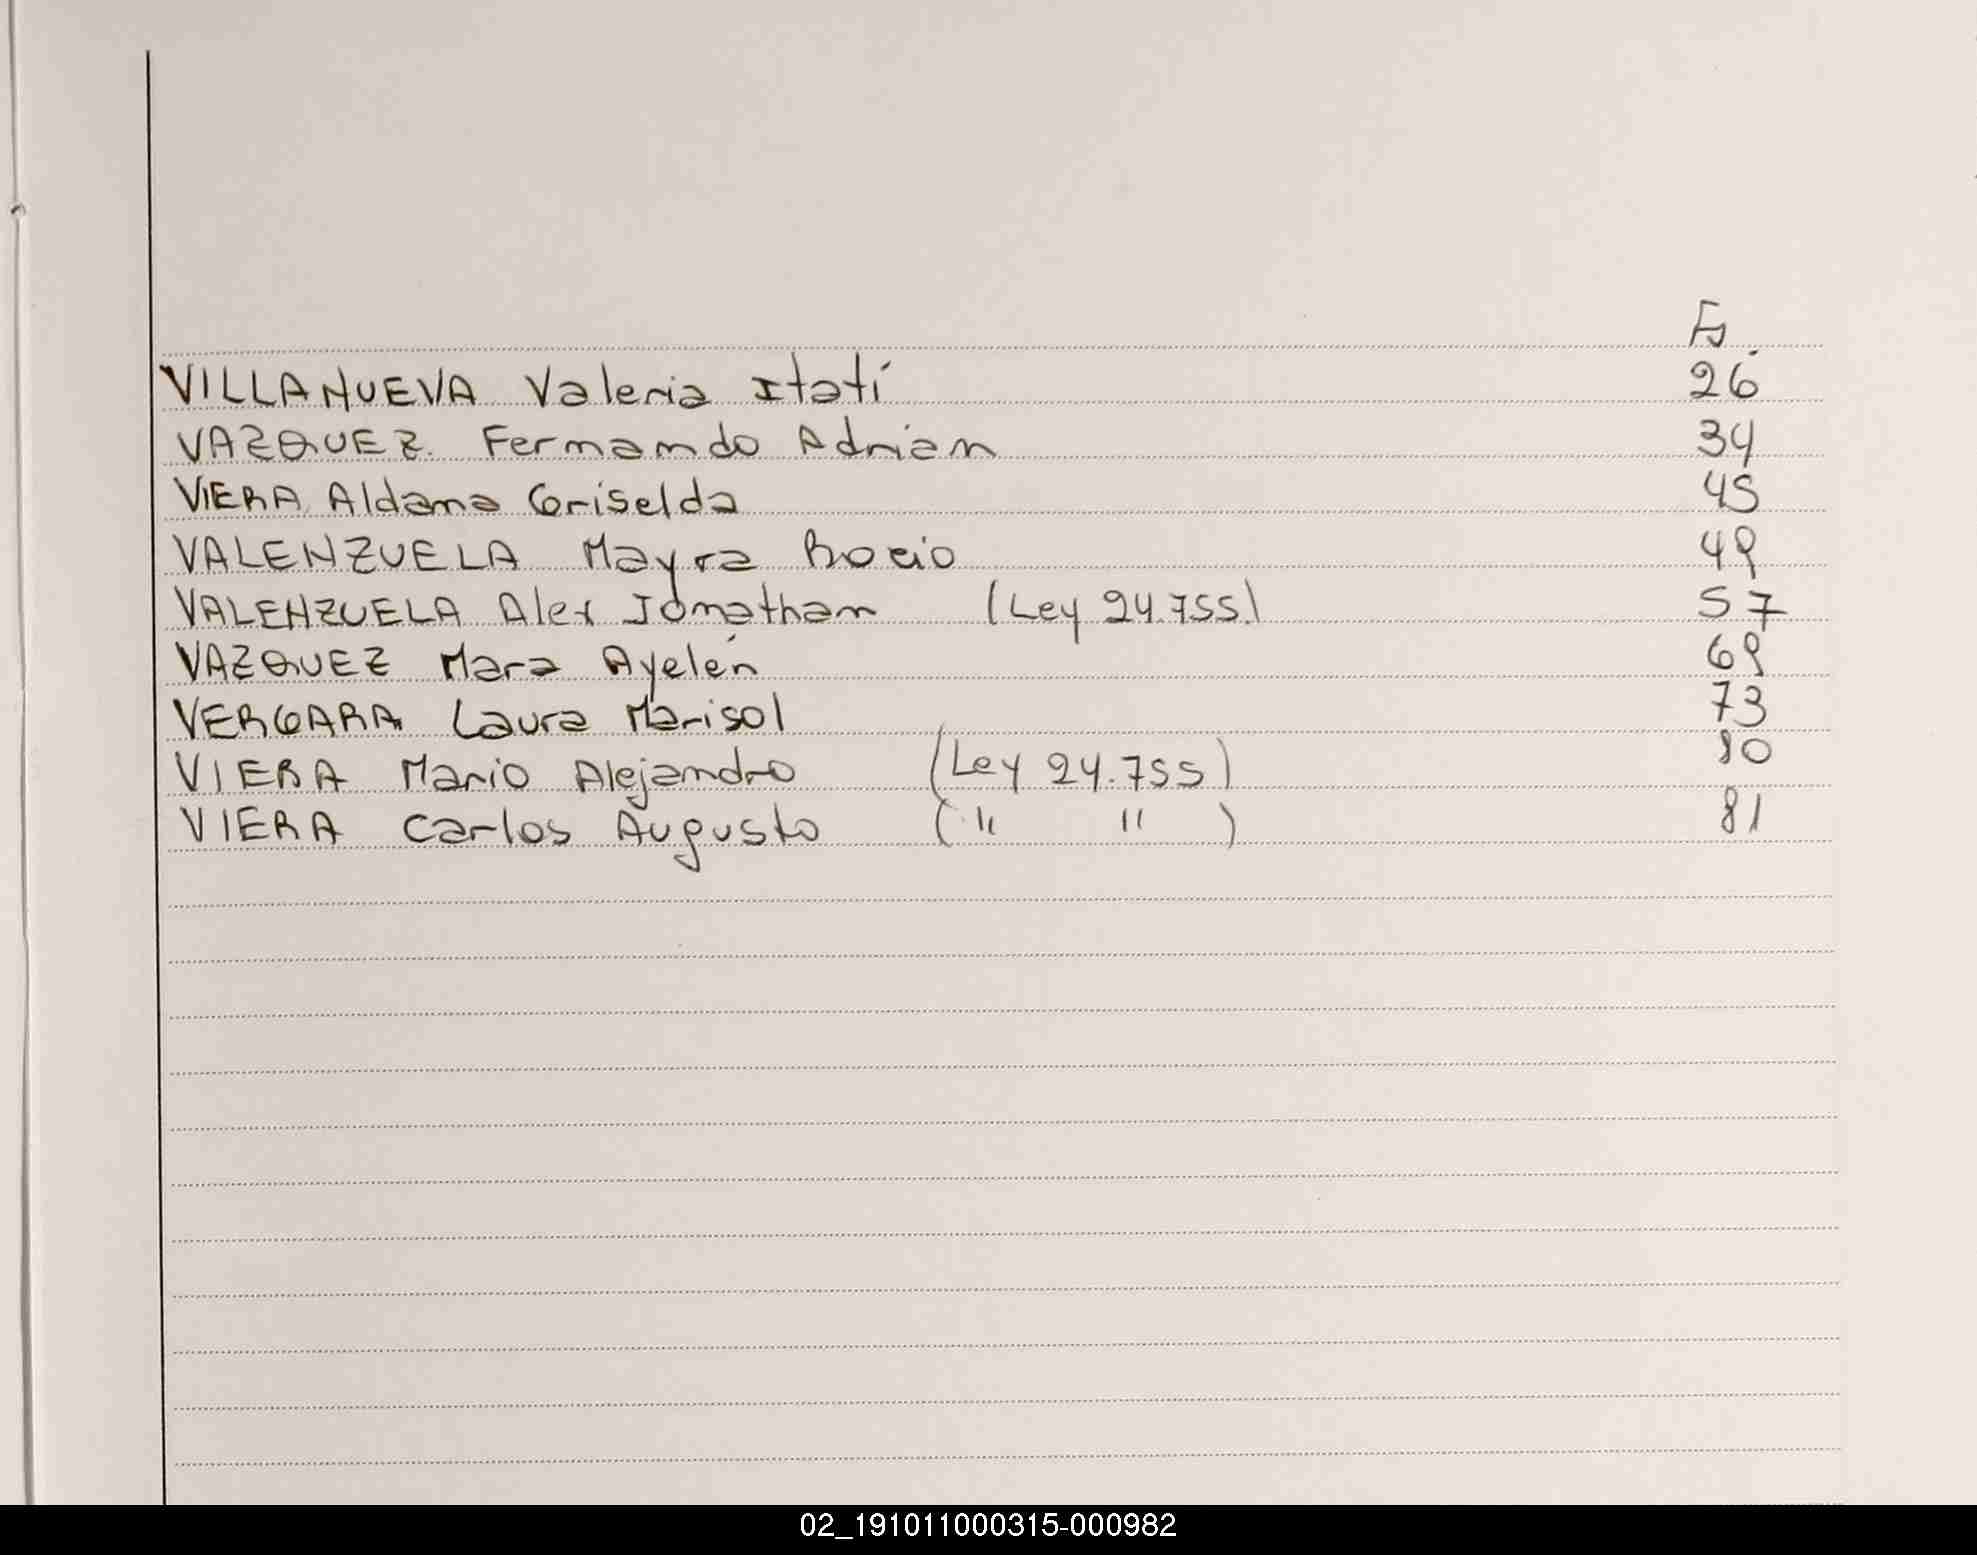 Fs.
VILLANUEVA Valeria Itatí 26
VAZQUEZ Fernando Adrian 34
VIERA Aldana Griselda 45
VALENZUELA Mayra Rocio 49
VALENZUELA Alex Jonathan (Ley 24.755) 57
VAZQUEZ Mara Ayelén 69
VERGARA Laura Marisol 73
VIERA Mario Alejandro (Ley 24.755) 80
VIERA Carlos Augusto ( " " ) 81
02_191011000315-000982